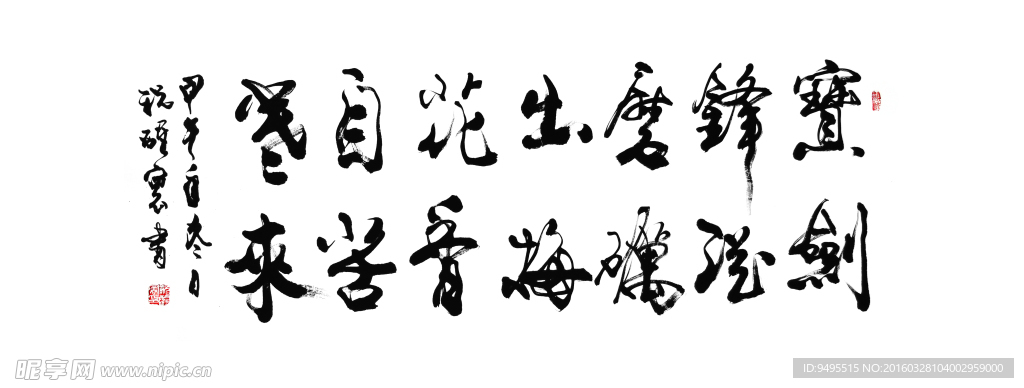 寶劍
鋒從
磨礪
出梅
花香
自苦
寒來
甲午年冬月
書
昵享网 www.nipic.cn
ID:9495515 NO:20160328104002959000